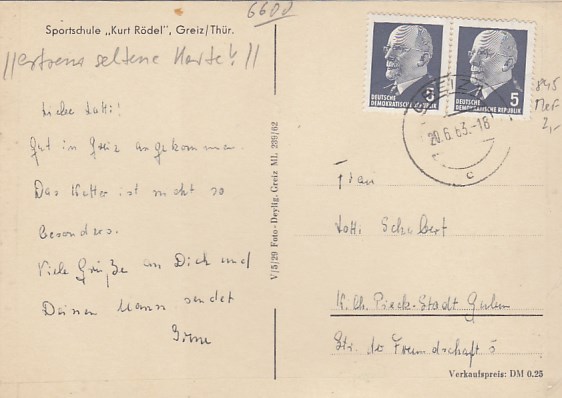 6600
Sportschule „Kurt Rödel", Greiz/Thür.
//extrem seltene Karte!//
Liebe Lotti!
Gut in Greiz angekommen.
Das Wetter ist nicht so
besonders.
Viele Grüße an Dich und
Deinen Mann sendet
V/5/29 Foto-Deylig, Greiz ML 239/62
DEUTSCHE
DEMOKRATISCHE REPUBLIK
5
DEUTSCHE
DEMOKRATISCHE REPUBLIK
5
GREIZ
20.6.63.-18
c
845
2,-
Frau
Lotti Schubert
W. Pieck-Stadt Guben
Str. der Freundschaft 5
Verkaufspreis: DM 0.25